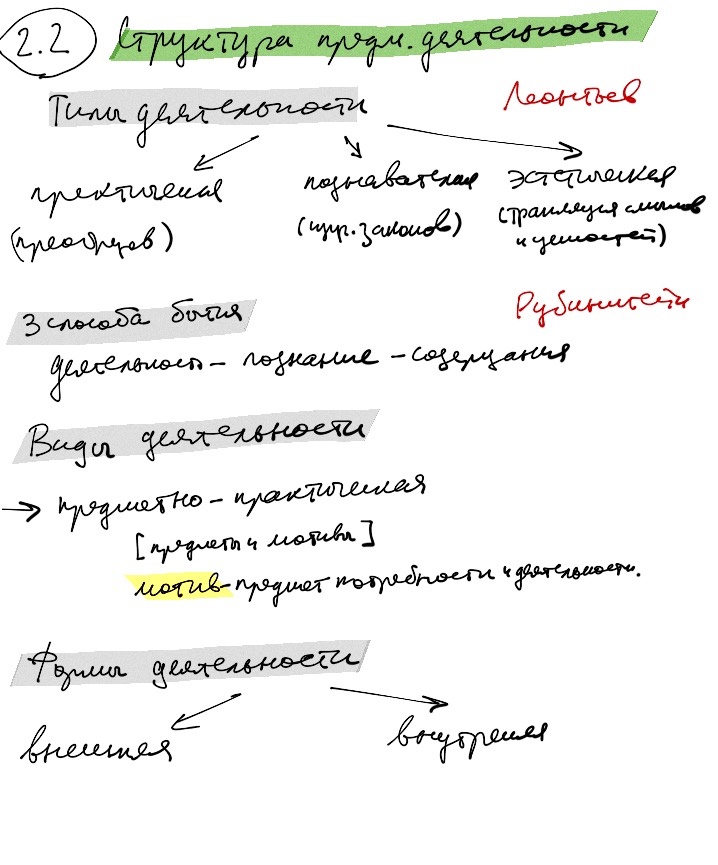 2.2 Структура предм. деятельности
Типы деятельности
Леонтьев
практическая познавательная эстетическая
(преобразов) (изуч. законов) (трансляция смыслов
и ценностей)
3 способа бытия
Рубинштейн
деятельность – познание – созерцания
Виды деятельности
→ предметно – практическая
[предметы и мотивы]
мотив – предмет потребности и деятельности.
Формы деятельности
внешняя внутренняя